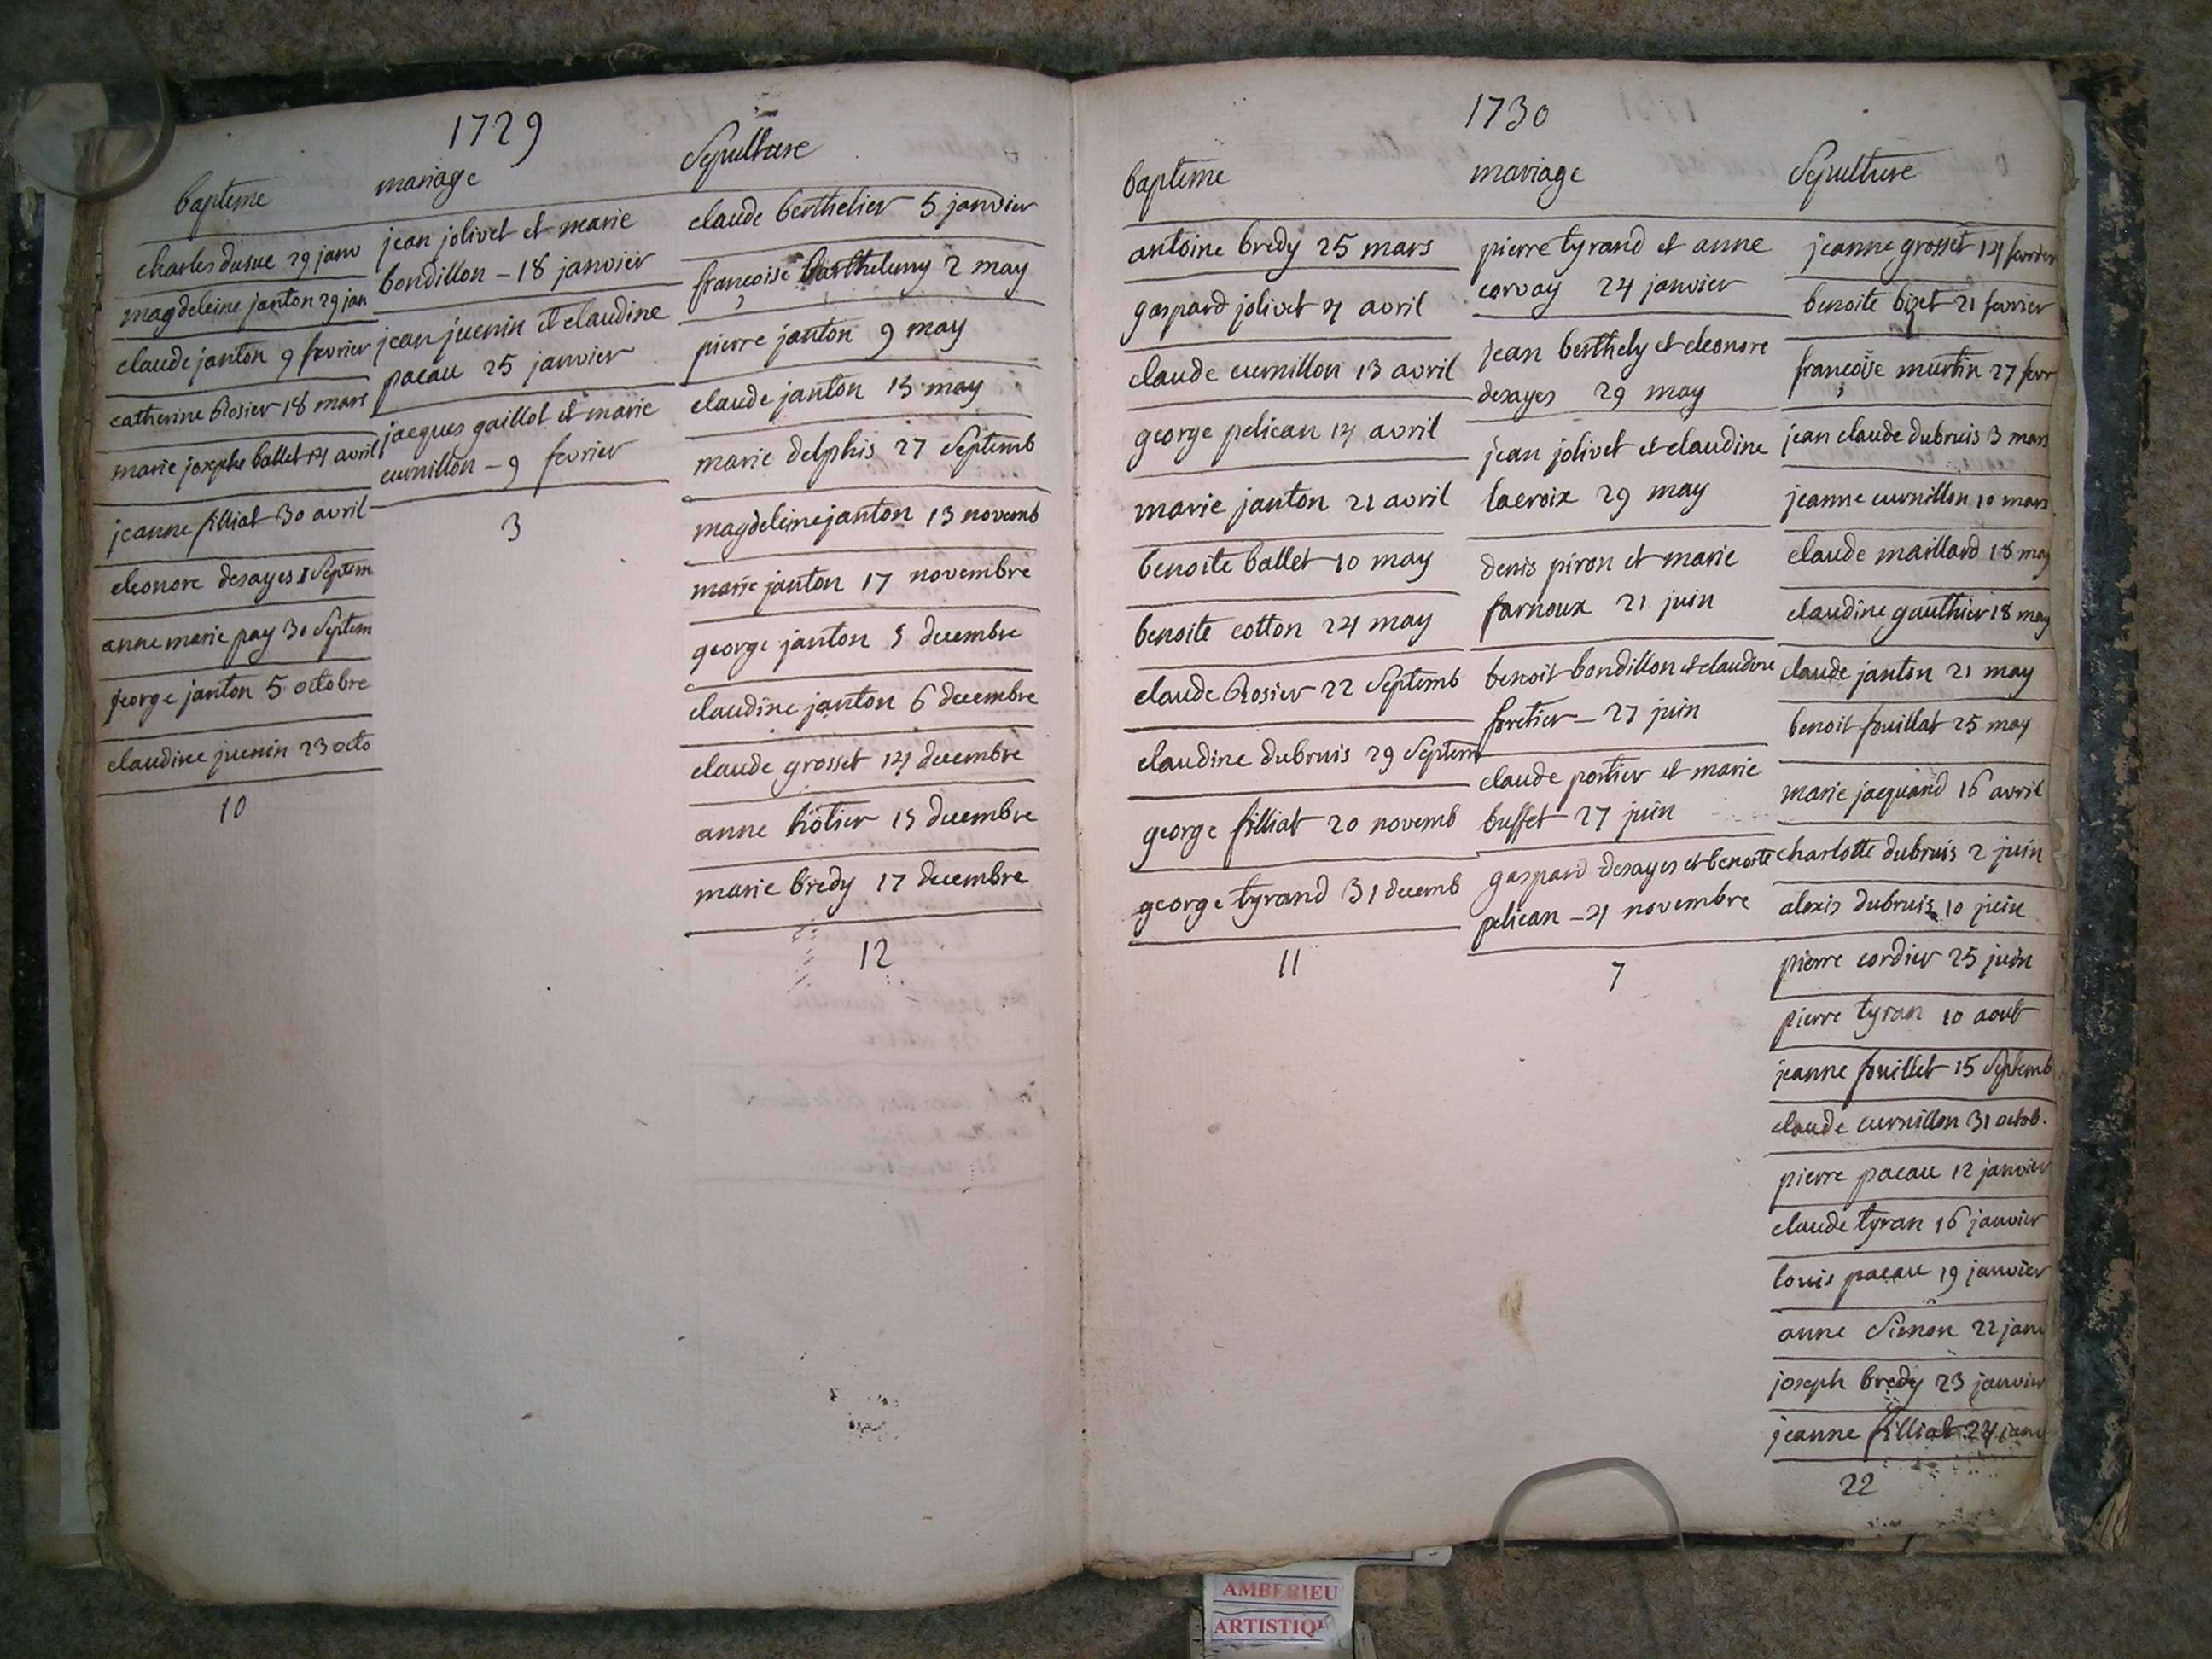 1729
bapteme
charles dusue 29 janv
magdeleine janton 29 jan
claude janton 9 fevrier
catherine Rosier 18 mars
marie josephe ballet 14 avril
jeanne filliat 30 avril
eleonore desayes 1 Septem
anne marie pay 30 Septem
george janton 5 octobre
claudine juenin 23 octo
10
mariage
jean jolivet et marie
bondillon - 18 janvier
jean juenin et claudine
pacau 25 janvier
jacques gaillot et marie
curnillon - 9 fevrier
3
Sepulture
claude berthelier 5 janvier
francoise barthelemy 2 may
pierre janton 9 may
claude janton 15 may
marie delphis 27 Septemb
magdeleine janton 13 novemb
marie janton 17 novembre
george janton 5 decembre
claudine janton 6 decembre
claude grosset 14 decembre
anne 15 decembre
marie bredy 17 decembre
12
1730
bapteme
antoine bredy 25 mars
gaspard jolivet 4 avril
claude curnillon 13 avril
george pelican 14 avril
marie janton 21 avril
benoite ballet 10 may
benoite cotton 24 may
claude Rosier 22 Septemb
claudine dubruis 29 Septem
george filliat 20 novemb
george tyrand 31 decemb
11
mariage
pierre tyrand et anne
corvay 24 janvier
jean berthely et eleonore
desayes 29 may
jean jolivet et claudine
lacroix 29 may
denis piron et marie
farnoux 21 juin
benoit bondillon et claudine
foretier - 27 juin
claude portier et marie
buffet - 27 juin
gaspard desayes et benoite
pelican - 21 novembre
7
Sepulture
jeanne grosset 14 fevrier
benoite bizet 21 fevrier
francoise murtin 27 fevr
jean claude dubruis 3 mars
jeanne curnillon 10 mars
claude maillard 18 may
claudine gauthier 18 may
claude janton 21 may
benoit fouillat 25 may
marie jacquand 16 avril
charlotte dubruis 2 juin
alexis dubruis 10 juin
pierre cordier 25 juin
pierre tyran 10 aout
jeanne fouillet 15 Septemb
claude curnillon 31 octob.
pierre pacau 12 janvier
claude tyran 16 janvier
louis pacau 19 janvier
anne Simon 22 janv
joseph bredy 23 janvier
jeanne filliat 24 janv
22
AMBERIEU
ARTISTIQ